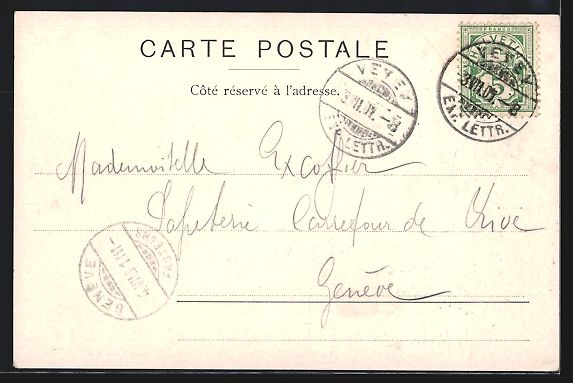 CARTE POSTALE
Côté réservé à l'adresse.
HELVETIA
FRANCO
VEVEY
EXP. LETTR.
VEVEY
EXP. LETTR.
Mademoiselle Excoffier
Papeterie Carrefour de Rive
Genève
GENÈVE
FACTEURS